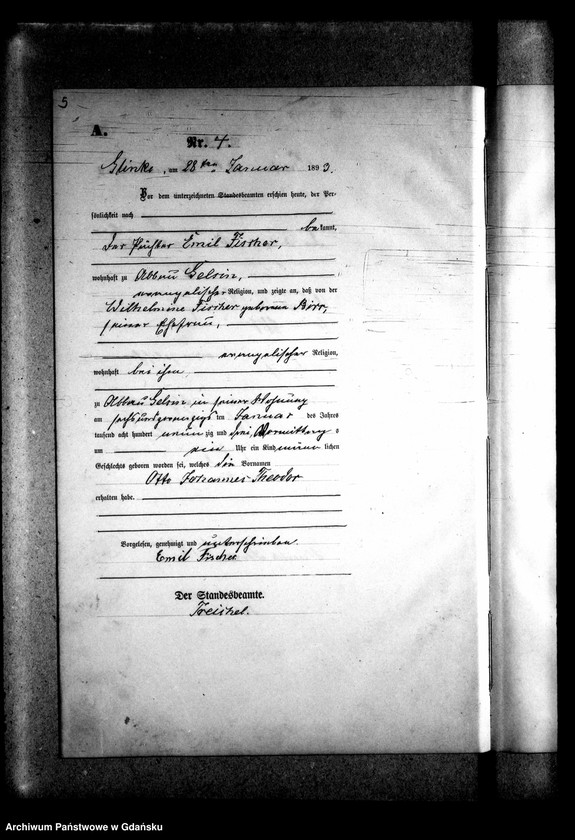 5
A.
Nr. 4.
Glinke, am 28ten Januar 1893.
Vor dem unterzeichneten Standesbeamten erschien heute, der Per-
sönlichkeit nach
bekannt,
der Pächter Emil Fischer,
wohnhaft zu Abbau Gelsin,
evangelischer Religion, und zeigte an, daß von der
Wilhelmine Fischer geborenen
seiner Ehefrau,
evangelischer Religion,
wohnhaft bei ihm
zu Abbau Gelsin, in seiner Wohnung
am sechsundzwanzigsten Januar des Jahres
tausend acht hundert neunzig und drei, Vormittags
um ein Uhr ein Kind männlichen
Geschlechts geboren worden sei, welches die Vornamen
Otto Johannes Theodor
erhalten habe.
Vorgelesen, genehmigt und unterschrieben
Emil Fischer
Der Standesbeamte.
Treichel.
Archiwum Państwowe w Gdańsku